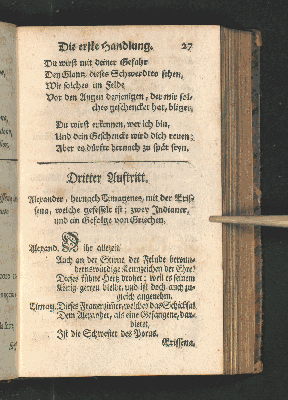 Die erste Handlung. 27
Du wirst mit deiner Gefahr
Den Glantz dieses Schwerdtes sehen,
Wie solches im Felde
Vor den Augen derjenigen, der mir sol-
ches geschencket hat, blitze,
Du wirst erkennen, wer ich bin,
Und dein Geschencke wird dich reuen;
Aber es dürfte hernach zu spät seyn.
Dritter Auftritt.
Alexander, hernach Timagenes, mit der Eris-
sena, welche gefesselt ist; zwey Indianer,
und ein Gefolge von Griechen.
Alexand. O ihr allezeit
Auch an der Stirne der Feinde bewun-
dernswürdige Kennzeichen der Ehre!
Dieses kühne Hertz drohet; weil es seinem
König getreu bleibt, und ist doch auch zu-
gleich angenehm.
Timag. Dieses Frauenzimmer, welches das Schicksal
Dem Alexander, als eine Gefangene, dar-
bietet,
Ist die Schwester des Porus.
Erissena.